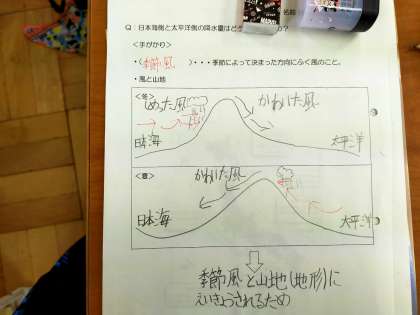 名前
Q：日本海側と太平洋側の降水量はど
？
<手がかり>
・（季節風）・・・季節によって決まった方向にふく風のこと。
・風と山地
<冬>
しめった風
かわいた風
日本海
太平洋
<夏>
かわいた風
日本海
太平洋
季節風と山地(地形)に
えいきょうされるため